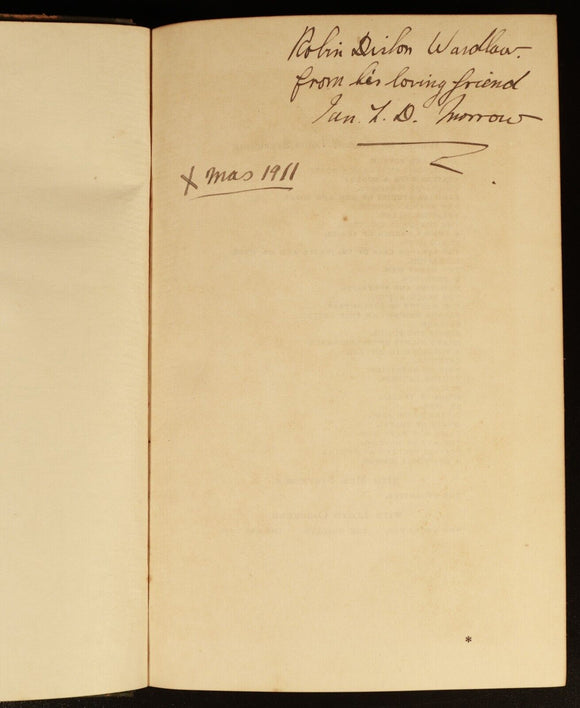 Robin Dixlon Wardlaw.
from his loving friend
Ian. L. D. Morrow
X mas 1911
*